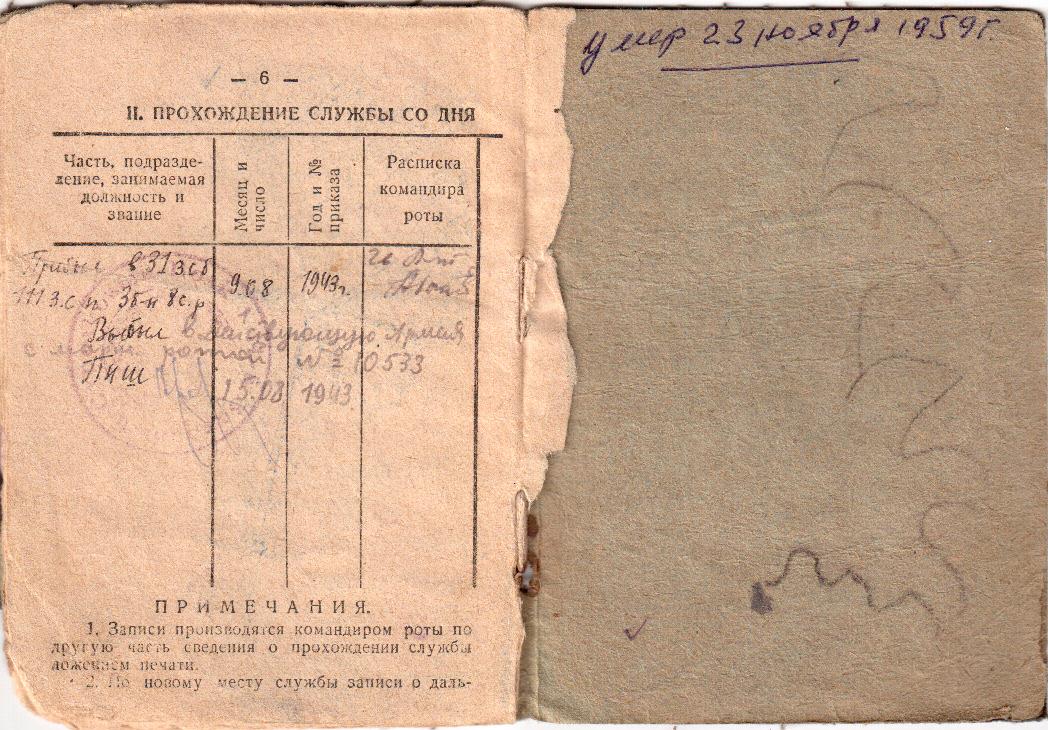 — 6 —
II. ПРОХОЖДЕНИЕ СЛУЖБЫ СО ДНЯ
Часть, подразде-
ление, занимаемая
должность и
звание
Месяц и
число
Год и №
приказа
Расписка
командира
роты
Прибыл в 31 з.с.б
111 з.с.п 3б-н 8с.р 9 08 1943г.
Выбыл в действующую Армия
с марш. ротой № 10533
15.08 1943
ПРИМЕЧАНИЯ.
1. Записи производятся командиром роты по
другую часть сведения о прохождении службы
ложением печати.
2. По новому месту службы записи о даль-
умер 23 ноября 1959г.